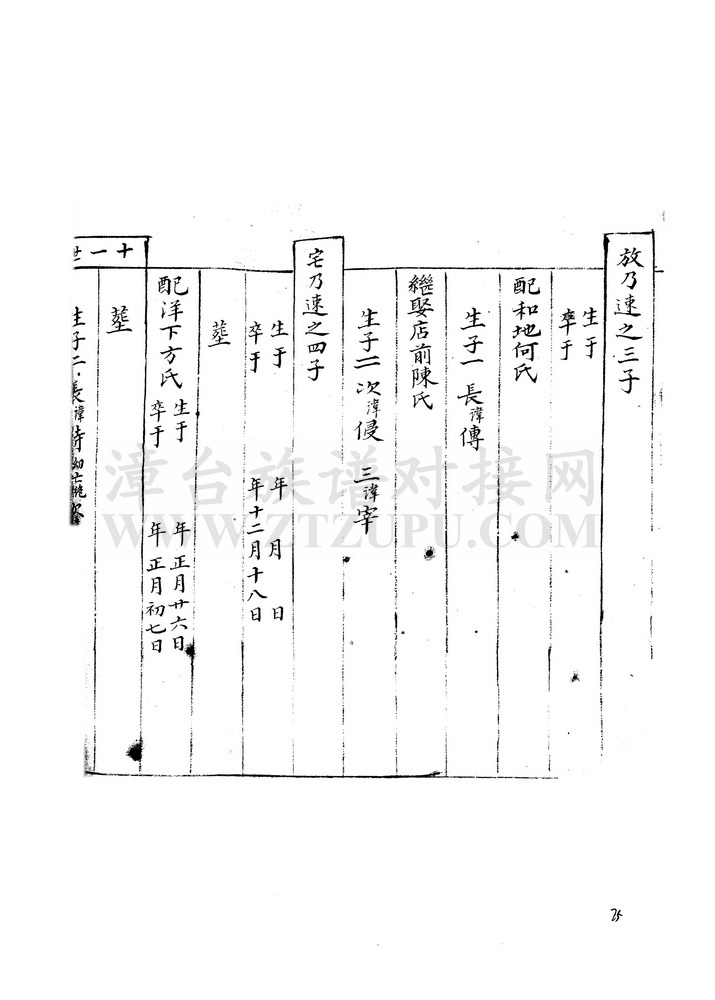 放乃速之三子
生于
卒于
配和地何氏
生子一長諱傳
繼娶店前陳氏
生子二次諱侵 三諱宰
宅乃速之四子
生于 年 月 日
卒于 年十二月十八日
塟
配洋下方氏
生于 年正月廿六日
卒于 年正月初七日
塟
十一世
生子二長諱
幼亡
次
漳台族谱对接网
WWW.ZTZUPU.COM
75